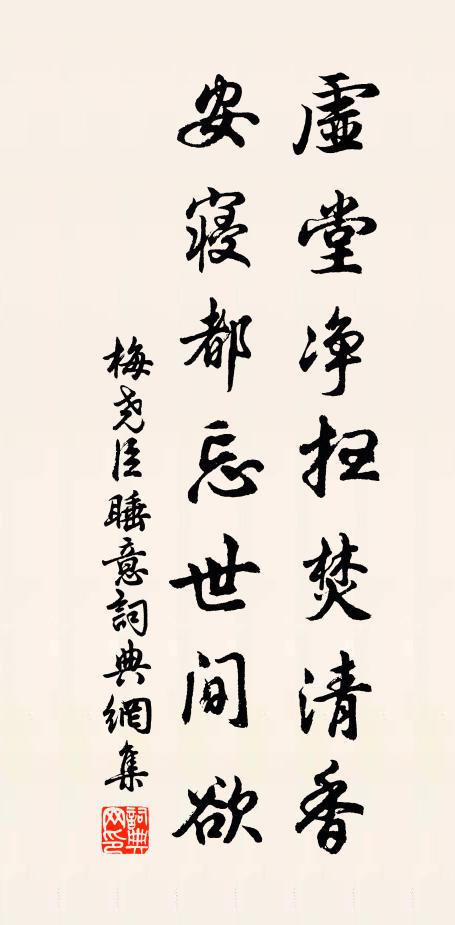 虚堂净扫焚清香
安寝都忘世间欲
梅尧臣睡意詞典網集
詞典网印